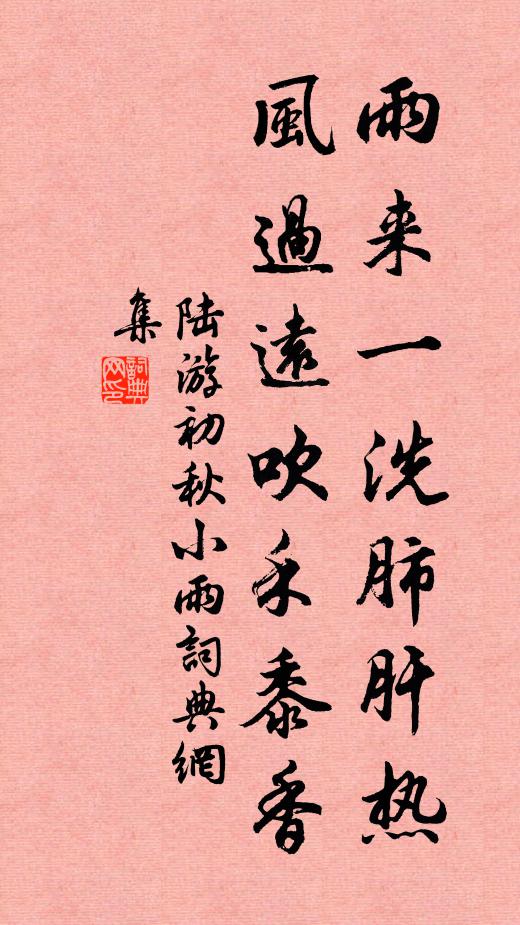 雨来一洗肺肝热
風過遠吹禾黍香
陆游初秋小雨詞典網
集
詞典
网印